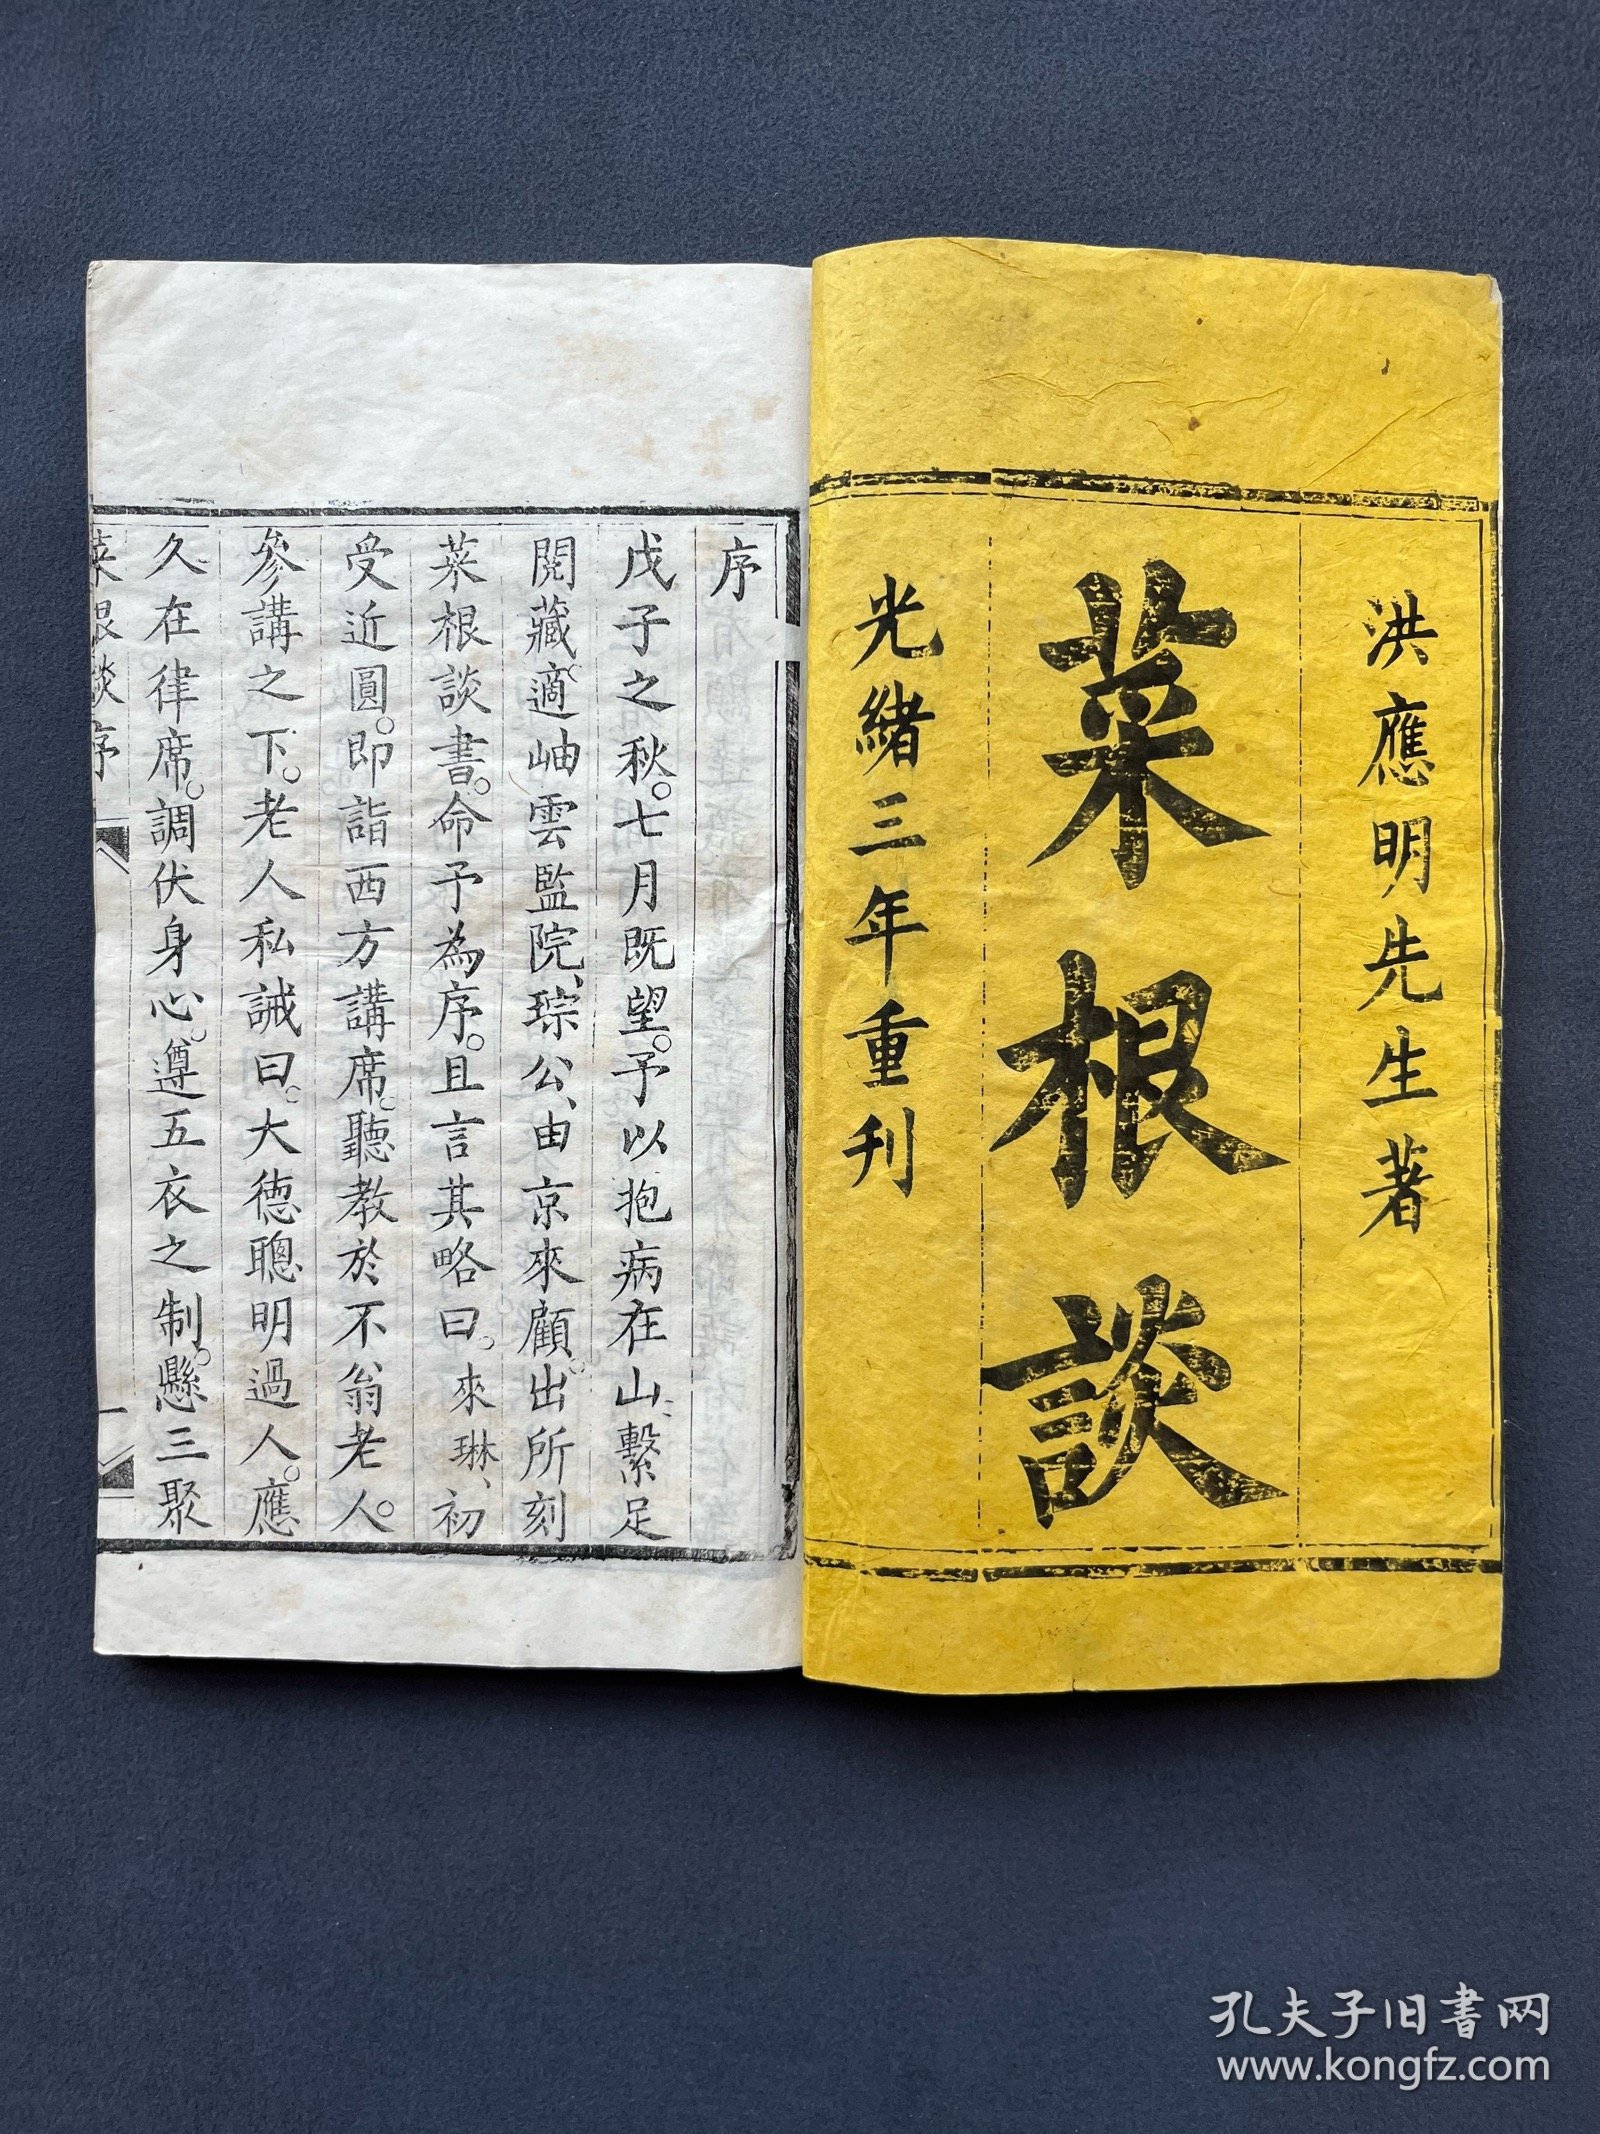 洪應明先生著
菜根談
光緒三年重刋
序
戊子之秋。七月既望。予以抱病在山、繫足
閱藏。適岫雲監院、琮公、由京來顧。出所刻
菜根談書。命予為序。且言其略曰。來琳、初
受近圓。即詣西方講席。聽教於不翁老人。
參講之下。老人私誡曰。大德聰明過人。應
久在律席。調伏身心。遵五衣之制。懸三聚
菜根談序
一
孔夫子旧书网
www.kongfz.com